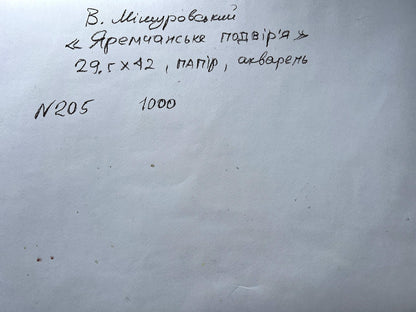 В. Мішуровський
« Яремчанське подвір'я »
29,5 х 42 , папір , акварель
N 205 1000